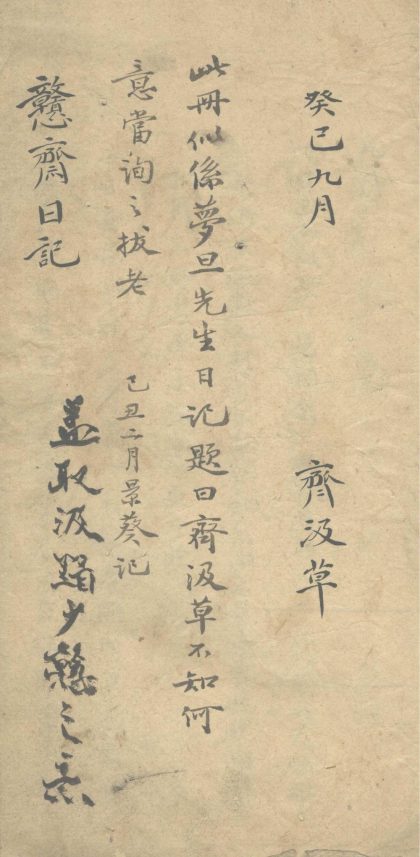 癸巳九月 齊汲草
此冊似係夢旦先生日記題曰齊汲草不知何
意當詢之拔老 己丑二月景葵記
戇齋日記
盖取汲黯少戇之意